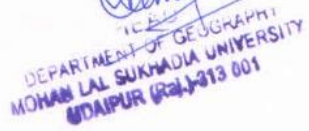 DEPARTMENT OF GEOGRAPHY
MOHAN LAL SUKHADIA UNIVERSITY
UDAIPUR (Raj.)-313 001